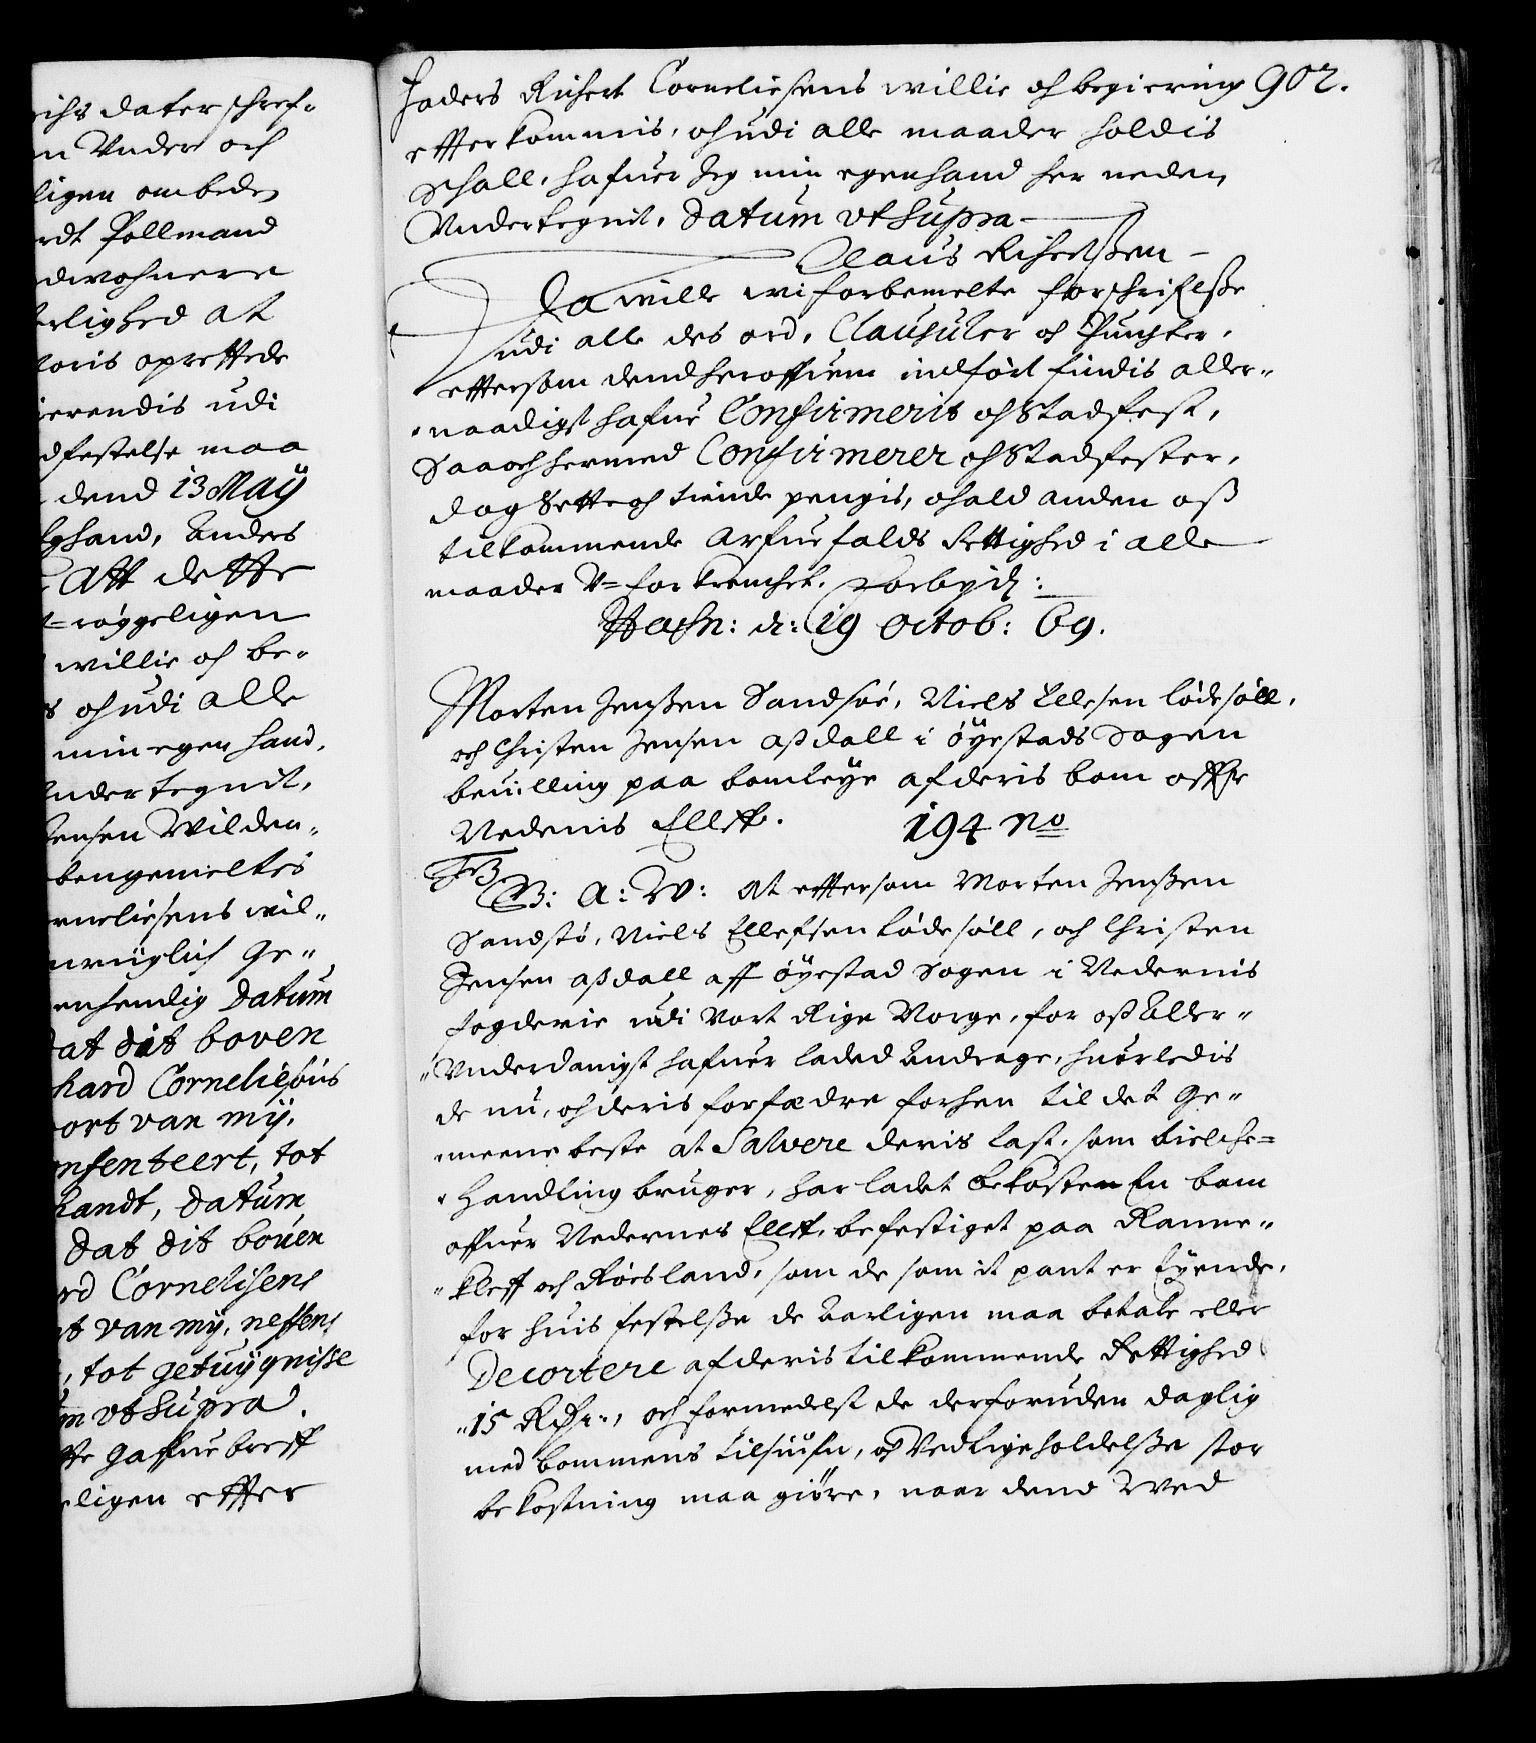 ichs dater schref-
n Under och
ligen ombeden
rdt Pollmand
dwohnere
erlighed at
toris oprettede
ierendis udi
dfestelse maa
dend 13 Maÿ
Eghand, Anders
Att dette
t=røggeligen
willie och be-
s och udi alle
min egen hand,
Under tegndt,
Jensen Wilden-
bengemeltes
rneliesens wil-
nwiiglich Ge-
enhendig Datum
at dit boven
hard Corneliesøns
ort van mÿ.
nsenteert, tot
handt, datum
dat dit boven
rd Cornelisens
t van mÿ, neffens
, tot getuÿgnisse
m vt Supra.
tte Gaffue breff
eligen effter
faders Richert Corneliesens willie och begiering 902.
effterkommis, och udi alle maader holdis
schall, hafuer Jeg min egenhand her neden
Undertegnit, Datum vt Supra
Claus Richertsßen
Da wille wi forbemelte forschrifelße
udi alle des ord, Clausuler och Puncter,
effter som dend her offuen indført findis aller-
naadigst hafue Confirmerit och Stadfest,
Saa och hermed Confirmerer och Stadfester,
dog Sette och tiende pengis, och ald anden oß
tilkommende arfuefalds Rettighed i alle
maader U=forkrenchet. Forbydℯ:
Hafn: d: 19 Octob: 69.
Morten Jenßen Sandstøe, Niels Ellefsen lødesøll,
och Christen Jensen aßdall i Øyestads Sogen
beuilling paa bomleye af deris bom offr
Nedenis Ellff. 194 no
F3
G: A: W: At effter som Morten Jenßen
Sandstø, Niels Ellefsen Lødesøll, och Christen
Jensen aßdall aff Øyestad Sogen i Nedernis
fogderie udi Vort Rige Norge, for oß Aller-
Underdanigst hafuer ladet Andrage, huorledis
de nu, och deris forfædre forhen til det Ge-
meene beste at Salvere deris last, som bielche=
Handling bruger, har ladet bekoste En bom
offuer Nedernes Ellff, befestiget paa Ranne-
kleff och Røesland, som de som it pant er Eyende,
for huis festelße de Aarligen maa betale eller
Decortere af deris tilkommende Rettighed
15 Rdr:, och formedelst de derforuden daglig
med bommens tilsiufn, och Vedligeholdelße stor
bekostning maa giøre, naar dend Wed